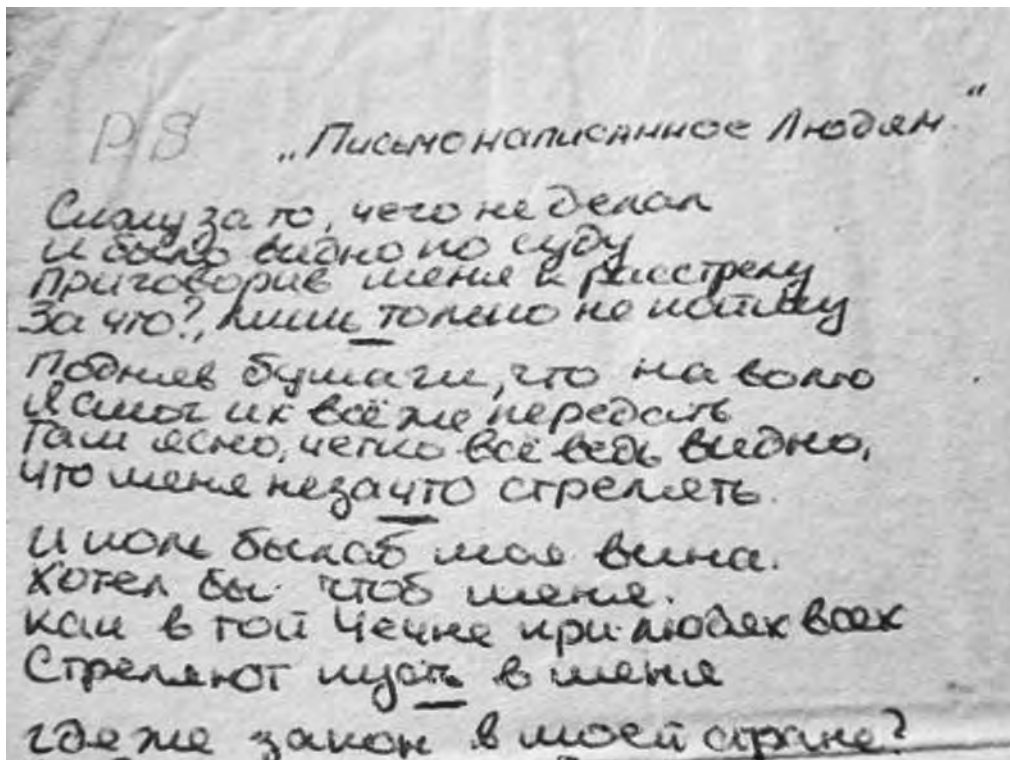 P/S „Письмо написаннное Людям“
Сижу за то, чего не делал
и было видно по суду
приговорив меня к расстрелу
За что?, лишь только не пойму
Подняв бумаги, что на волю
Я смог их всё же передать
Там ясно, четко всё ведь видно,
что меня незачто стрелять.
И коль былаб моя вина.
Хотел бы чтоб меня.
как в той Чечне при людях всех
Стреляют пусть в меня
где же закон в моей стране?